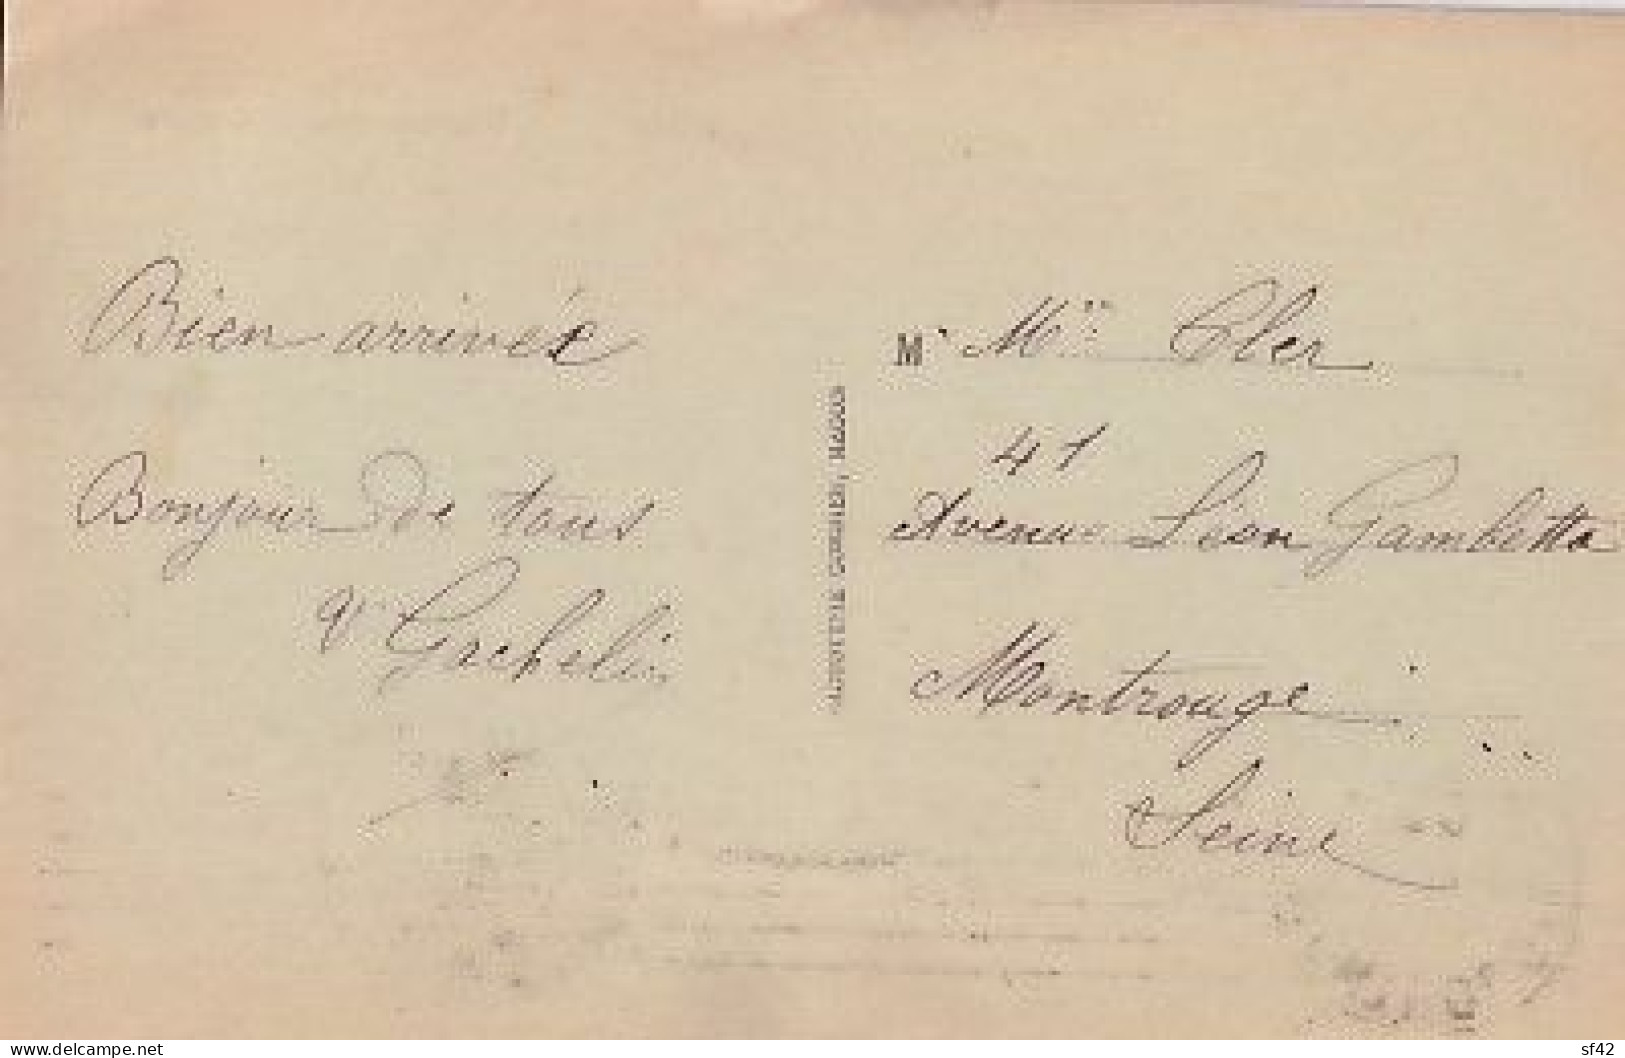 Bien arrivée
Bonjour de tous
Vve Grehelin
M Mme Cler
41
Avenue Léon Gambetta
Montrouge
Seine
delcampe.net
sf42